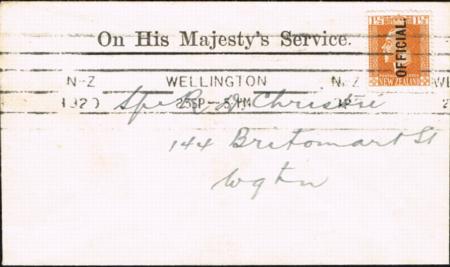 On His Majesty's Service.
1½D 1½D
OFFICIAL.
NEW ZEALAND
N-Z WELLINGTON N-Z WE
1920 25SP-5PM 19 2
R Christie
144 Britomart St
Wgtn